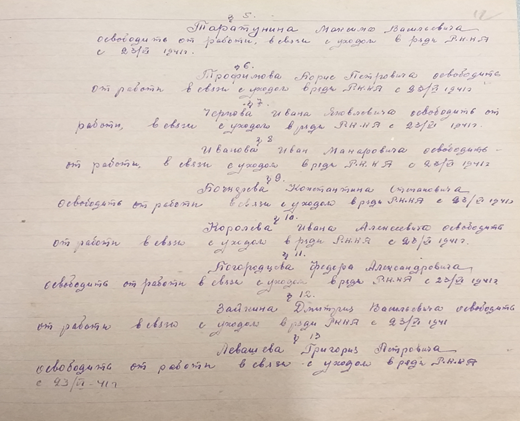 § 5.
Таратунина Максима Васильевича
освободить от работы, в связи с уходом в ряды Р.К.К.А
с 23/VI 1941г.
§ 6.
Трофимова Борис Петровича освободить
от работы в связи с уходом в ряды Р.К.К.А с 23/VI 1941г
§ 7.
Чернова Ивана Яковлевича освободить от
работы, в связи с уходом в ряды Р.К.К.А с 23/VI 1941г
§ 8
Иванова Иван Макаровича освободить
от работы, в связи с уходом в ряды Р.К.К.А с 23/VI 1941г
§ 9.
Константина
освободить от работы в связи с уходом в ряды Р.К.К.А с 23/VI 1941г
§ 10.
Королева Ивана Алексеевича освободить
от работы в связи с уходом в ряды Р.К.К.А с 23/VI 1941г.
§ 11.
Погородцева Федора Александровича
освободить от работы в связи с уходом в ряды Р.К.К.А с 23/VI 1941г
§ 12.
Зайкина Дмитрия Васильевича освободить
от работы в связи с уходом в ряды Р.К.К.А с 23/VI 1941
§ 13
Левашева Григория Петровича
освободить от работы в связи с уходом в ряды Р.К.К.А
с 23/VI - 41г.